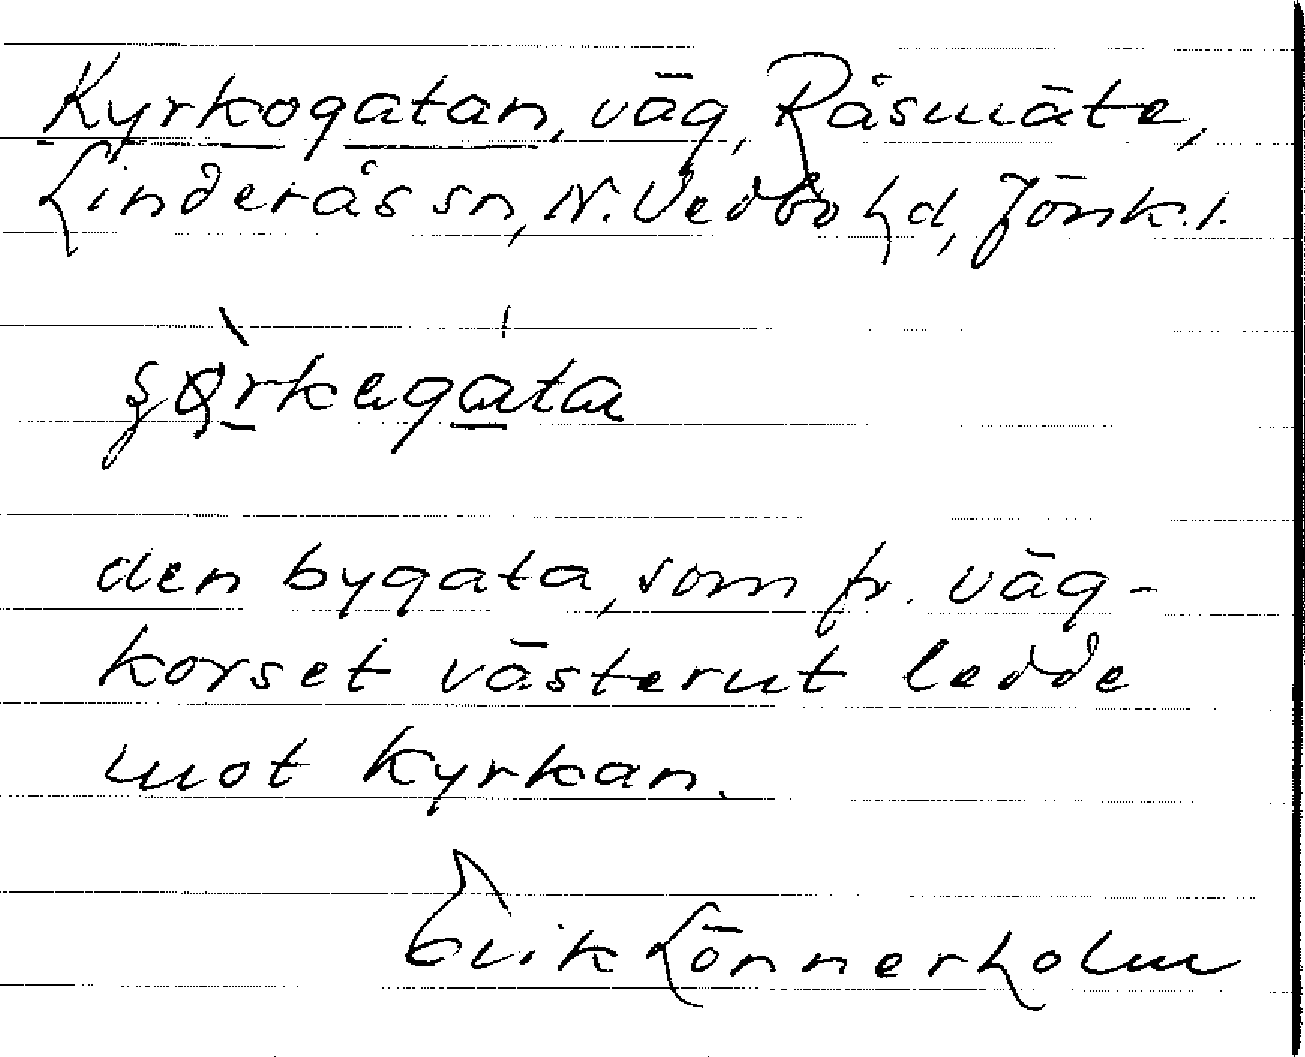 Kyrkogatan, väg, Råsmäte,
Linderås sn, N. Vedbo hd, Jönk. l.
den bygata, som fr. väg-
korset västerut ledde
mot kyrkan.
Erik Lönnerholm